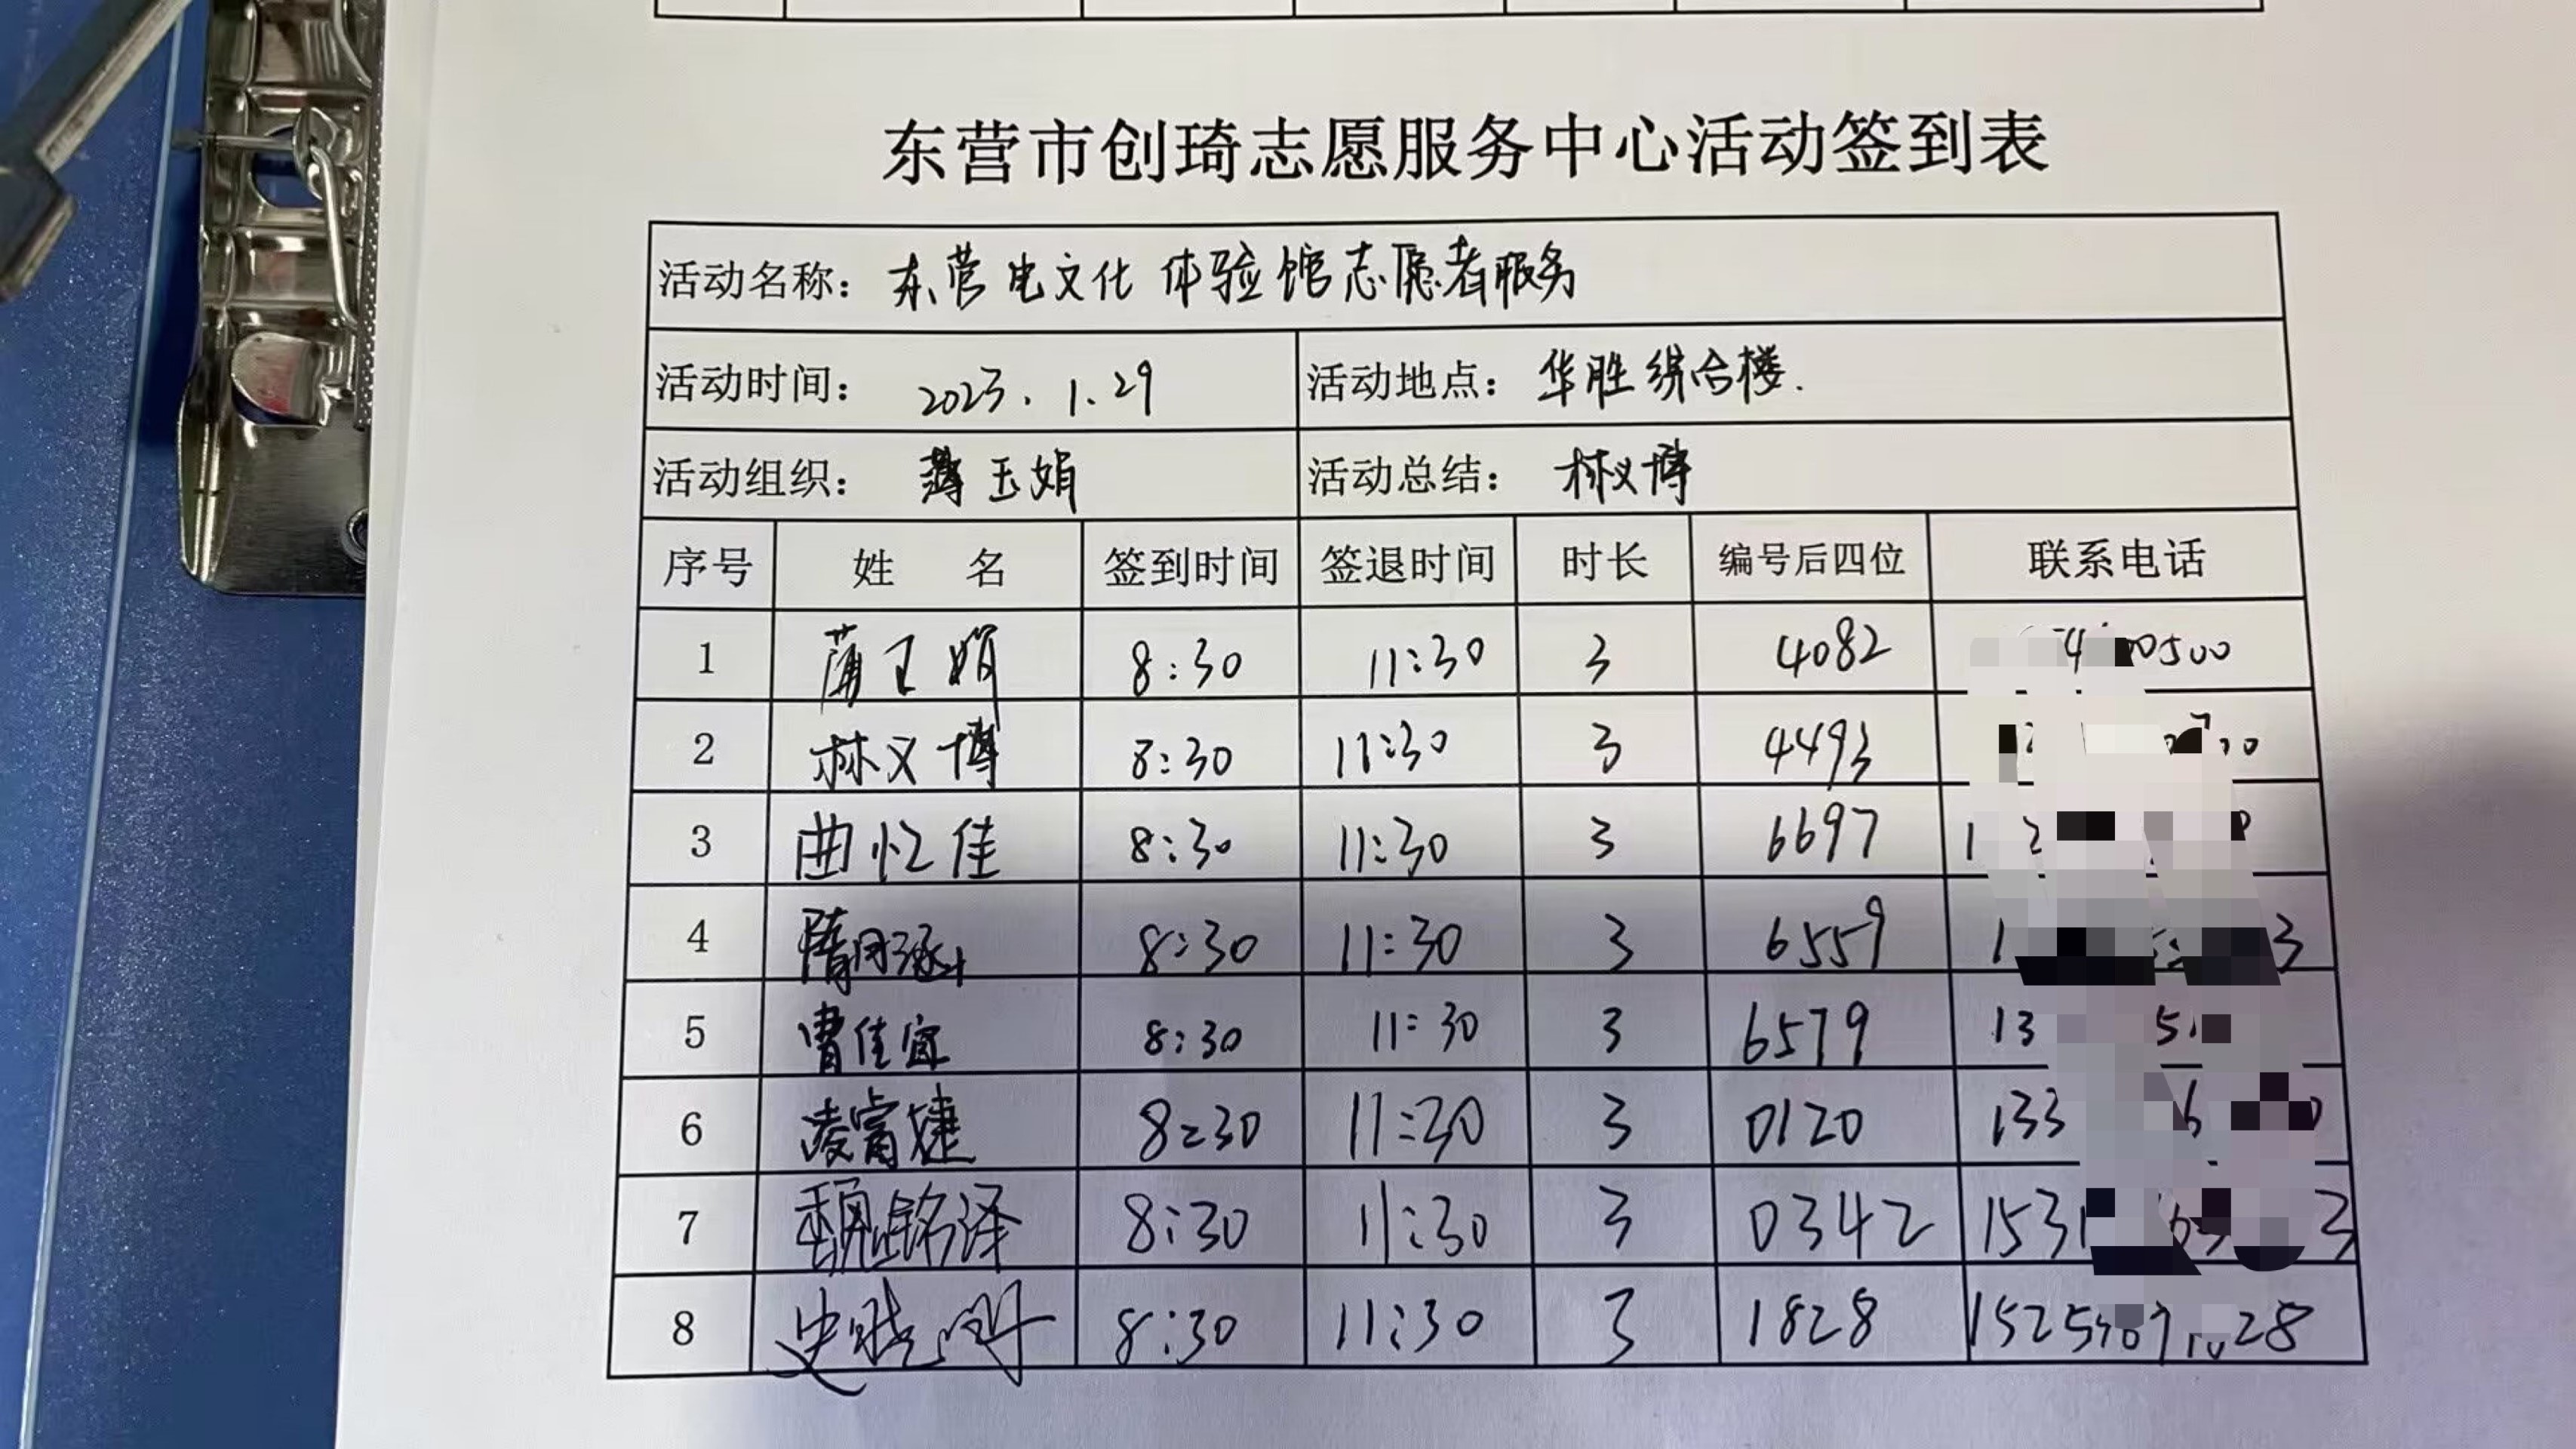 东营市创琦志愿服务中心活动签到表
活动名称：东营电文化体验馆志愿者服务
活动时间：2023.1.29 活动地点：华胜综合楼.
活动组织：薄玉娟 活动总结：林义博
序号 姓 名 签到时间 签退时间 时长 编号后四位 联系电话
1 蒲玉娟 8:30 11:30 3 4082
2 林义博 8:30 11:30 3 4493
3 曲忆佳 8:30 11:30 3 6697
4 8:30 11:30 3 6559
5 曹佳宜 8:30 11:30 3 6579
6 凌富婕 8:30 11:30 3 0120
7 魏铭泽 8:30 11:30 3 0342
8 8:30 11:30 3 1828